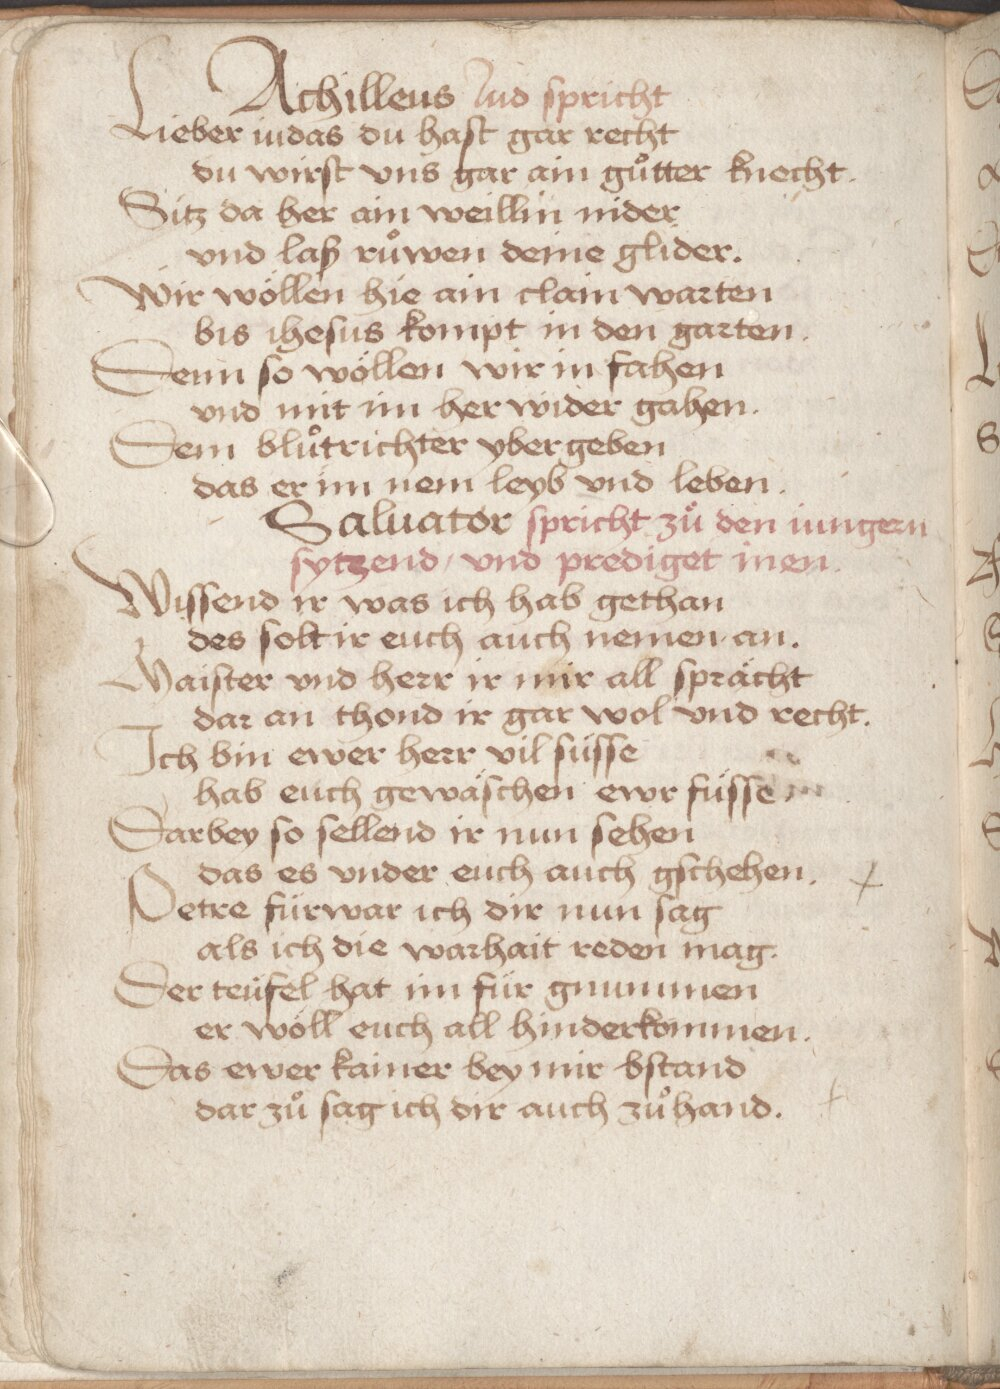 Achilleus Jud spricht
Lieber iudas du hast gar recht
du wirst vns gar ain gůtter knecht.
Sitz da her ain weillin nider
vnd laß růwen deine glider.
Wir wöllen hie ain clain warten
bis ihesus kompt in den garten.
Denn so wöllen wir in fahen
vnd mit im her wider gahen.
Dem blůtrichter ybergeben
das er im nem leyb vnd leben.
Saluator spricht zů den iungern
sytzend / vnd prediget inen.
Wissend ir was ich hab gethan
des solt ir euch auch nemen an.
Maister vnd herr ir mir all sprächt
dar an thond ir gar wol vnd recht.
Ich bin ewer herr vil süsse
hab euch gewäschen ewr füsse.
Darbey so sellend ir nun sehen
das es vnder euch auch gschehen.
Petre fürwar ich dir nun sag
als ich die warhait reden mag.
Der teüfel hat im für gnummen
er wöll euch all hinderkommen.
Das ewer kainer bey mir bstand
dar zů sag ich dir auch zůhand.